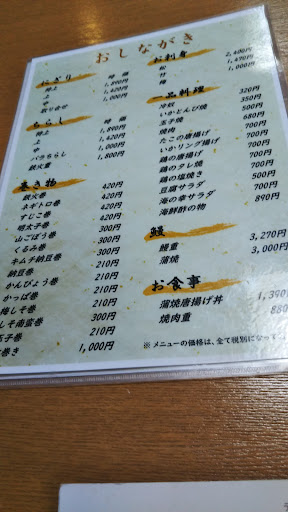 おしながき
にぎり 時価
特上 1,890円
上 1,420円
中 1,000円
ちらし 時価
特上 1,890円
上 1,420円
中 1,000円
バラちらし 1,800円
鉄火重
巻き物
鉄火巻 420円
ネギトロ巻 420円
すじこ巻 420円
明太子巻 300円
山ごぼう巻 300円
くるみ巻 300円
キムチ納豆巻 300円
納豆巻 210円
かんぴょう巻 210円
かっぱ巻 210円
梅しそ巻 210円
しそ南蛮巻 300円
玉子巻 210円
巻き 1,000円
お刺身
松 2,400円
竹 1,470円
梅 1,000円
一品料理
冷奴 320円
いかとんび焼 350円
玉子焼 500円
焼肉 680円
たこの唐揚げ 700円
いかリング揚げ 700円
鶏の唐揚げ 700円
鶏のタレ焼 700円
鶏の塩焼き 700円
豆腐サラダ 500円
海の幸サラダ 700円
海鮮酢の物 890円
鰻
鰻重 3,270円
蒲焼 3,000円
お食事
蒲焼唐揚げ丼
焼肉重
※メニューの価格は、全て税別になって